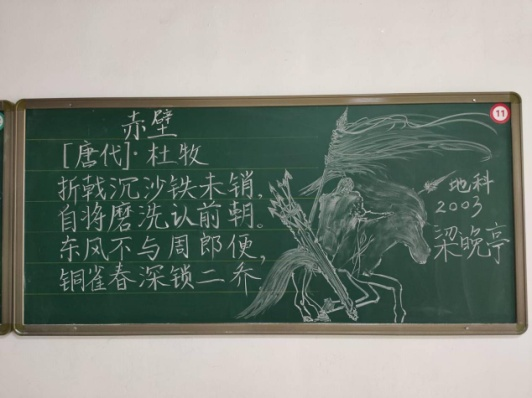 赤壁
[唐代]·杜牧
折戟沉沙铁未销,
自将磨洗认前朝。
东风不与周郎便,
铜雀春深锁二乔
地科
2003
梁晚亭
11